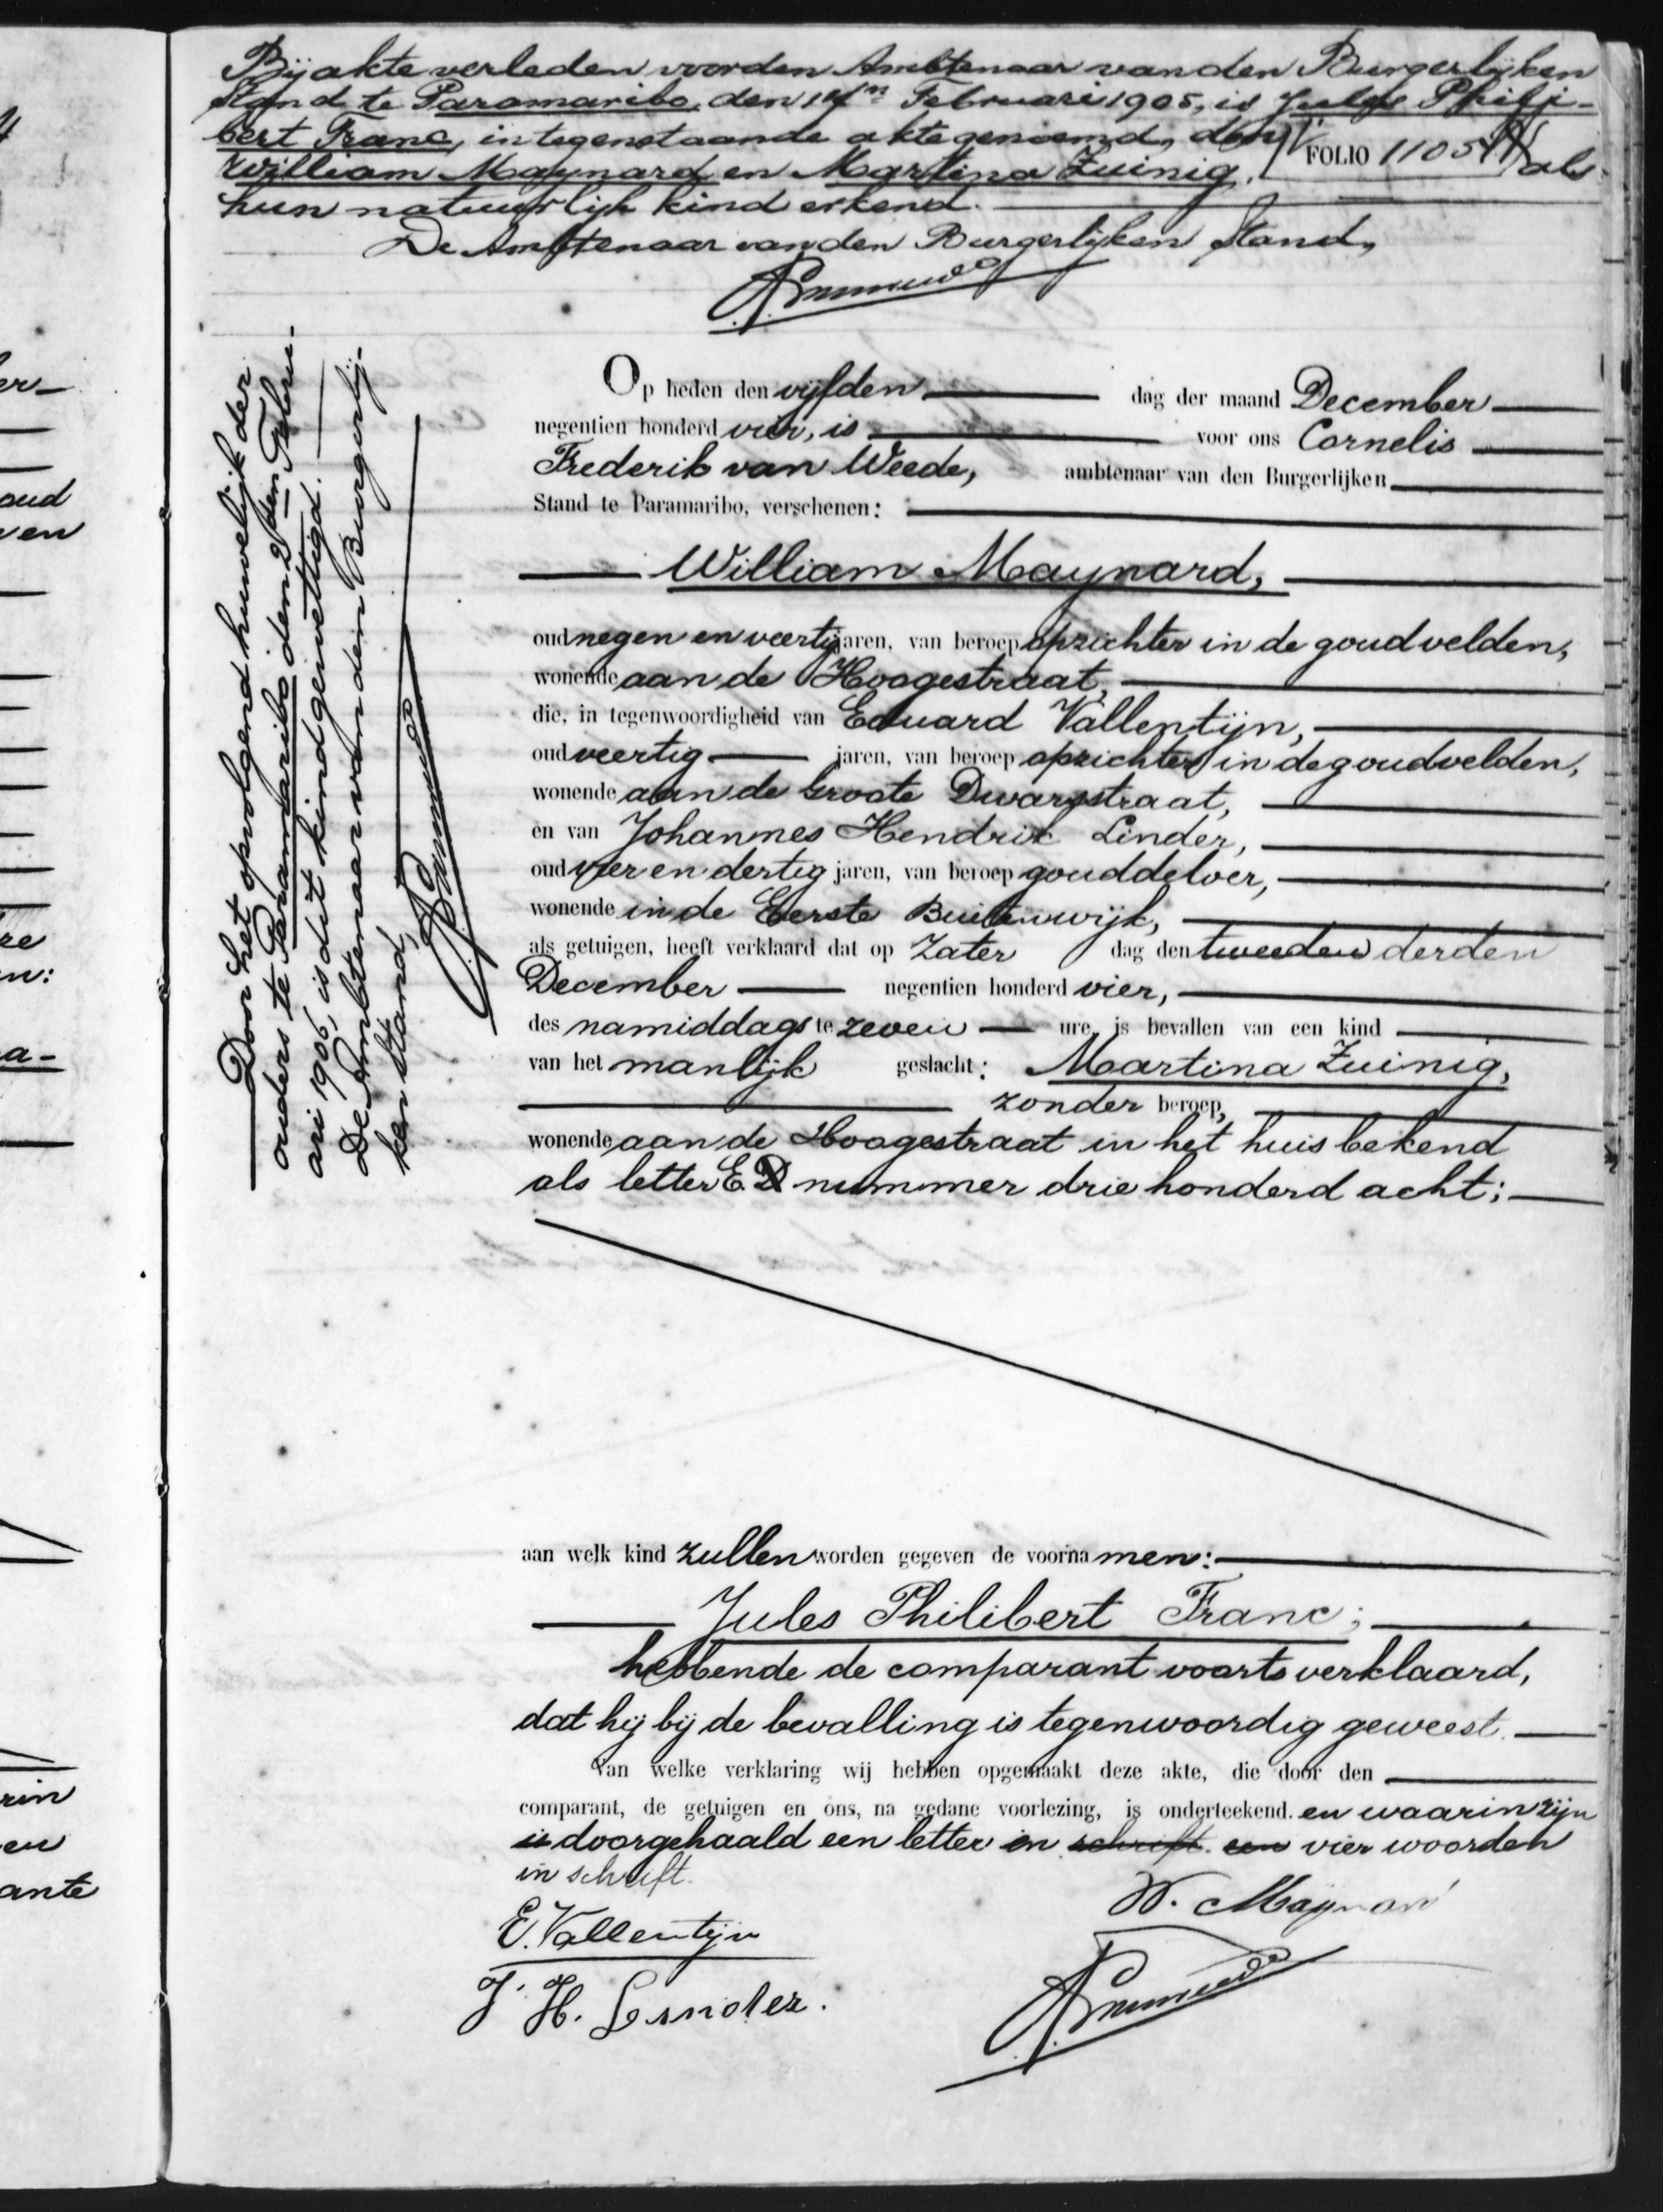 Bij akte verleden voor den Ambtenaar van den Burgerlijken
Stand te Paramaribo, den 14n Februari 1905, is Jules Phili-
bert Franc, in tegenstaande akte genoemd, door
FOLIO 1105
William Maynard en Martina Zuinig, als
hun natuurlijk kind erkend.
De Ambtenaar van den Burgerlijken Stand,
Door het opvolgend huwelijk der
ouders te Paramaribo den 2den Febru-
ari 1906, is dit kind gewettigd.
De Ambtenaar van den Burgerlij-
ken Stand,
Op heden den vijfden dag der maand December
negentien honderd vier, is voor ons Cornelis
Frederik van Weede, ambtenaar van den Burgerlijken
Stand te Paramaribo, verschenen:
William Maynard,
oud negen en veertig jaren, van beroep opzichter in de goudvelden,
wonende aan de Hoogestraat,
die, in tegenwoordigheid van Eduard Vallentijn,
oud veertig jaren, van beroep opzichter in de goudvelden,
wonende aan de Groote Dwarsstraat,
en van Johannes Hendrik Linder,
oud vier en dertig jaren, van beroep gouddelver,
wonende in de Eerste Buitenwijk,
als getuigen, heeft verklaard dat op Zater dag den tweeden derden
December negentien honderd vier,
des namiddags te zeven ure, is bevallen van een kind
van het manlijk geslacht: Martina Zuinig,
zonder beroep,
wonende aan de Hoogestraat in het huis bekend
als letter E. D nummer drie honderd acht;
aan welk kind zullen worden gegeven de voornamen:
Jules Philibert Franc;
hebbende de comparant voorts verklaard,
dat hij bij de bevalling is tegenwoordig geweest.
Van welke verklaring wij hebben opgemaakt deze akte, die door den
comparant, de getuigen en ons, na gedane voorlezing, is onderteekend. en waarin zijn
is doorgehaald een letter en schrift. een vier woorden
in schrift.
W. Maynard
E. Vallentijn
J. H. Linder.
er-
oud
en
re
n:
a-
rin
en
ante